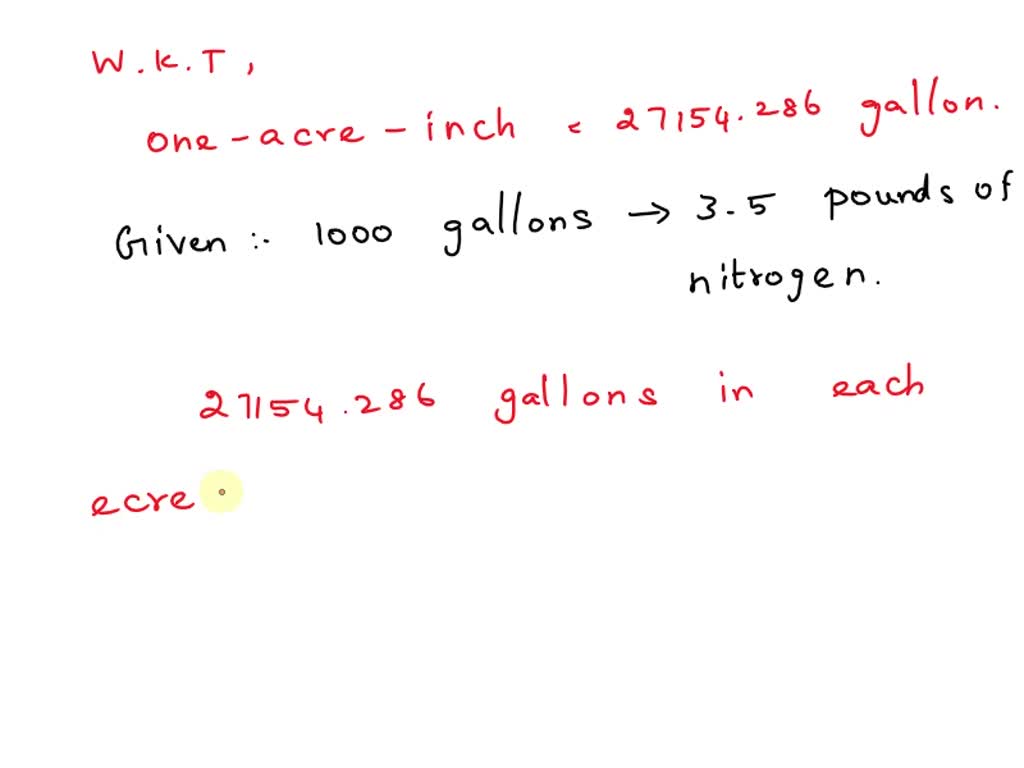 W.K.T,
one-acre-inch = 27154.286 gallon.
Given :- 1000 gallons → 3.5 pounds of
nitrogen.
27154.286 gallons in each
ecre